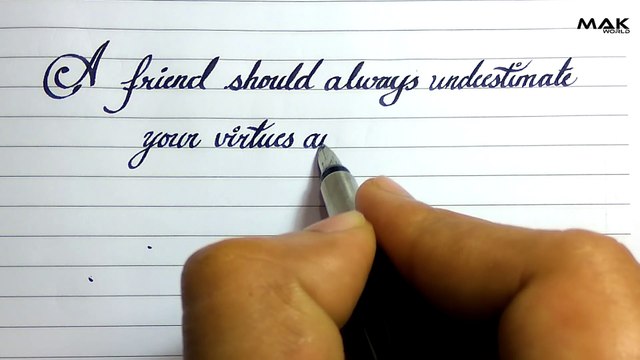 MAK
WORLD
A friend should always undeestimate
your virtues a